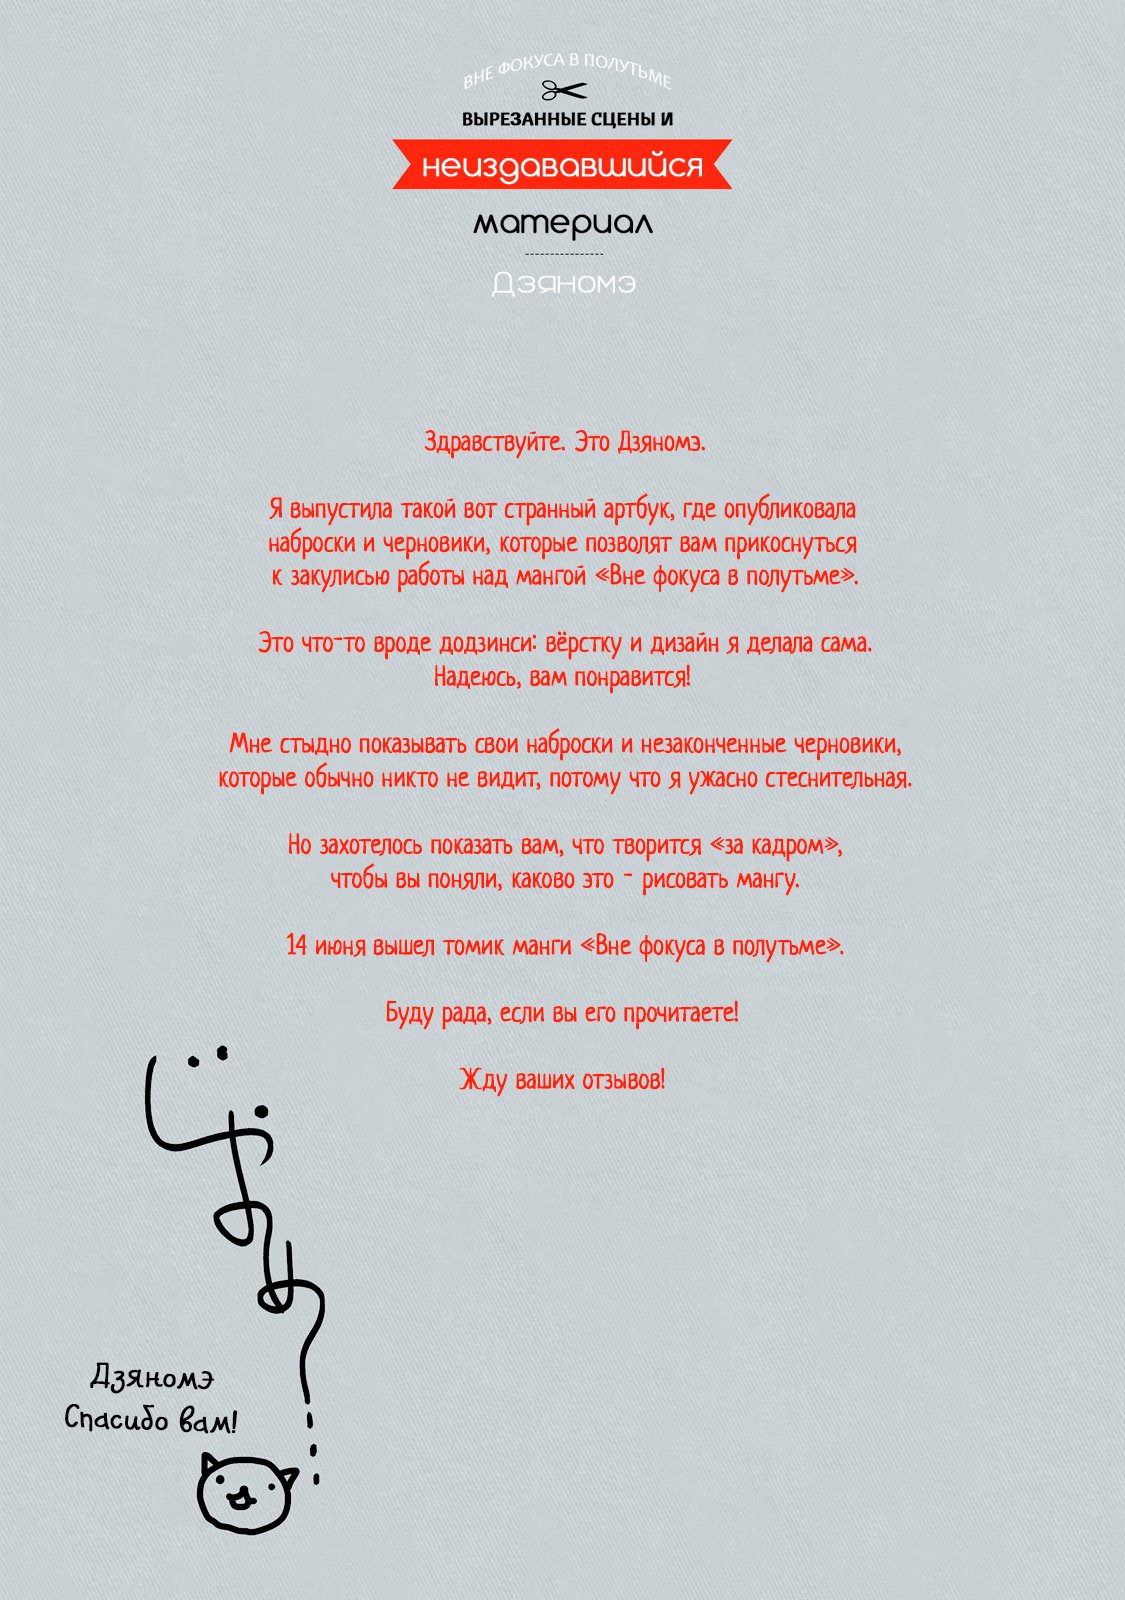 ВНЕ ФОКУСА В ПОЛУТЬМЕ
ВЫРЕЗАННЫЕ СЦЕНЫ И
неиздававшийся
материал
Дзяномэ
Здравствуйте. Это Дзяномэ.
Я выпустила такой вот странный артбук, где опубликовала
наброски и черновики, которые позволят вам прикоснуться
к закулисью работы над мангой «Вне фокуса в полутьме».
Это что-то вроде додзинси: вёрстку и дизайн я делала сама.
Надеюсь, вам понравится!
Мне стыдно показывать свои наброски и незаконченные черновики,
которые обычно никто не видит, потому что я ужасно стеснительная.
Но захотелось показать вам, что творится «за кадром»,
чтобы вы поняли, каково это - рисовать мангу.
14 июня вышел томик манги «Вне фокуса в полутьме».
Буду рада, если вы его прочитаете!
Жду ваших отзывов!
Дзяномэ
Спасибо вам!